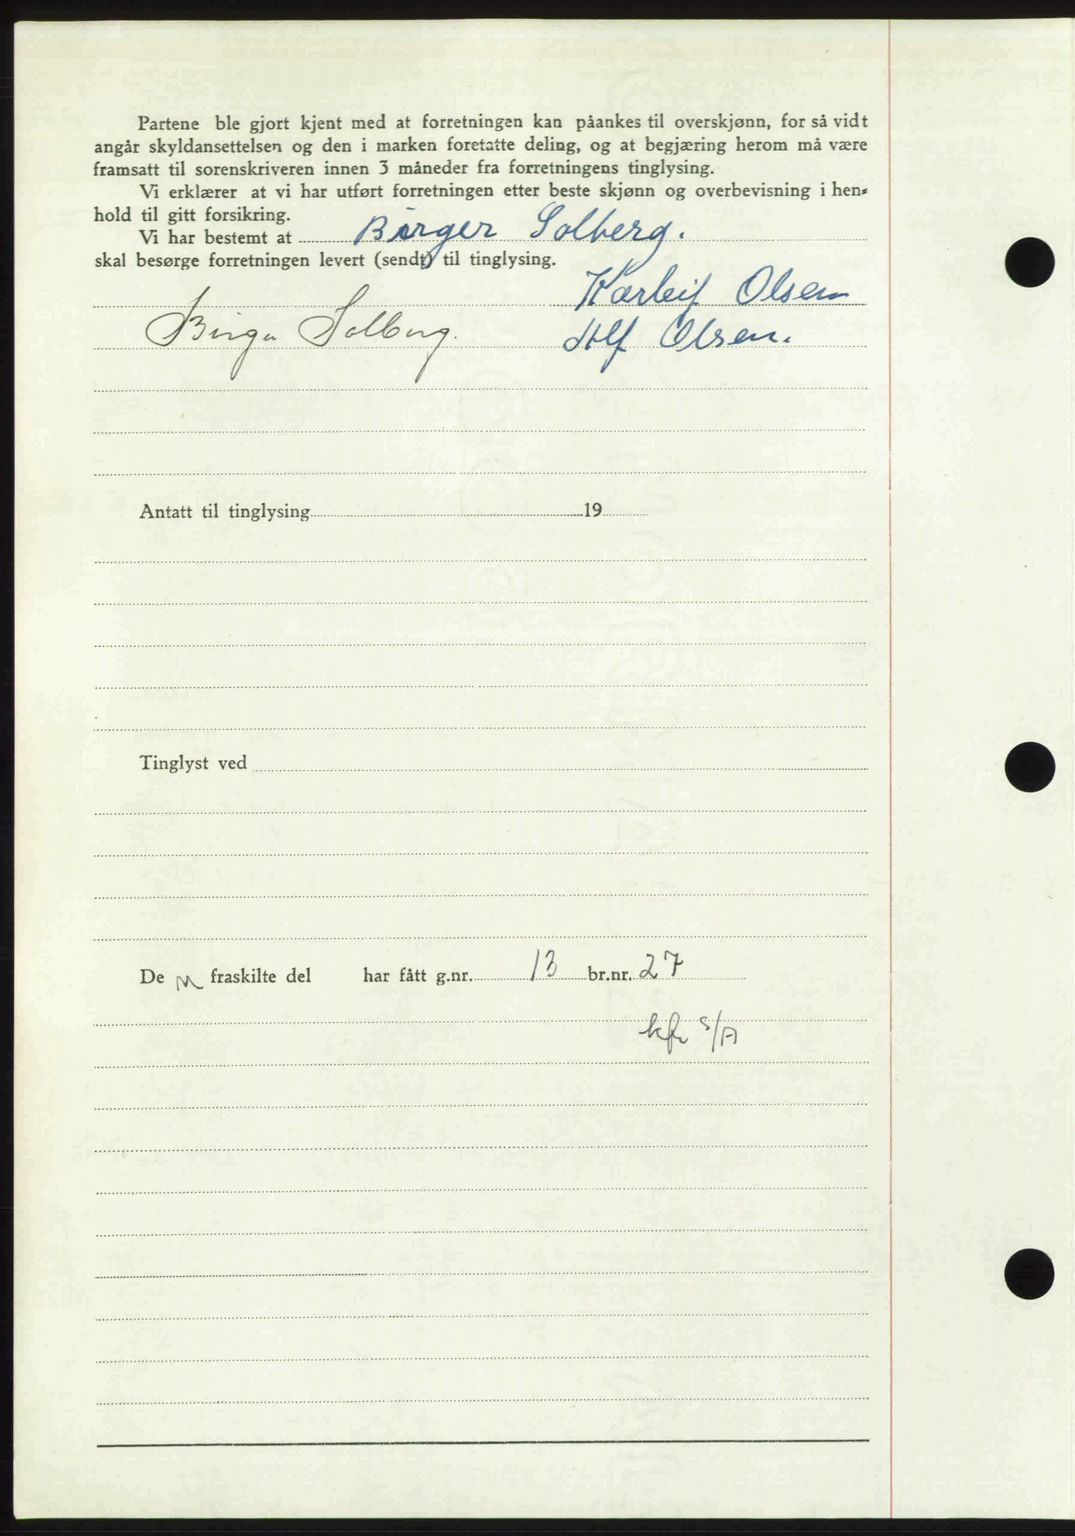 Partene ble gjort kjent med at forretningen kan påankes til overskjønn, for så vidt
angår skyldansettelsen og den i marken foretatte deling, og at begjæring herom må være
framsatt til sorenskriveren innen 3 måneder fra forretningens tinglysing.
Vi erklærer at vi har utført forretningen etter beste skjønn og overbevisning i hen-
hold til gitt forsikring.
Vi har bestemt at Birger Solberg.
skal besørge forretningen levert (sendt) til tinglysing.
Karleif Olsen
Birger Solberg. Alf Olsen.
Antatt til tinglysing 19
Tinglyst ved
De n fraskilte del har fått g.nr. 13 br.nr. 27
kfr S/A